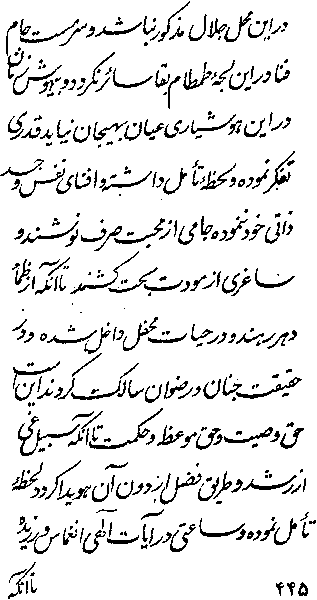 در این محل جلال مذکور نباشد و سرمست جام
فنا در این لجهٔ طمطام بقا سائر نگردد و بیهوش زمان
در این هوشیاری عیان بهیجان نیاید قدری
تفکر نموده و لحظهٔ تأمل داشته و افنای نفس و جسد
ذاتی خود نموده جامی از محبت صرف نوشند و
ساغری از مودت بحت کشند تا آنکه از ظلمات
دهر برهند و در حیات محفل داخل شده و در
حقیقت جنان در رضوان سالک گردند این است
حق وصیت و حق موعظه و حکمت تا آنکه سبیل غی
از رشد و طریق فضل از دون آن هویدا گردد لحظهٔ
تأمل نموده و ساعتی در آیات الهی انغماس ورزیده
۴۴۵ تا آنکه